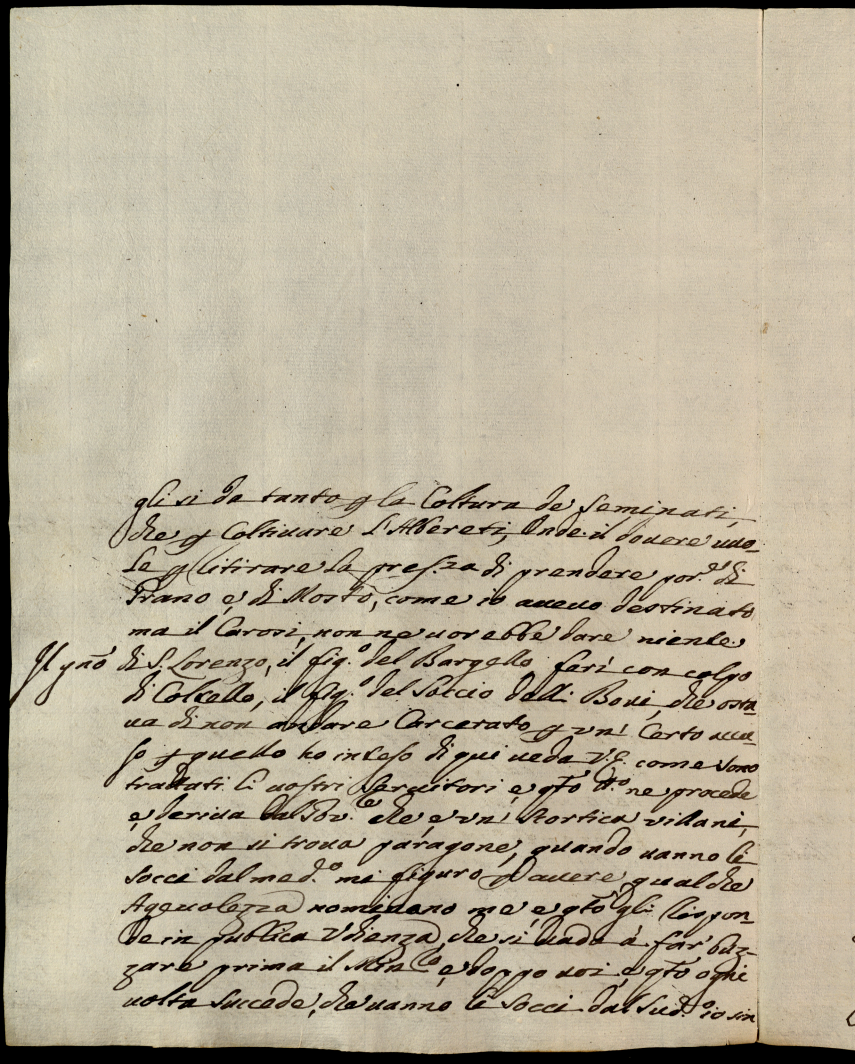 gli si da tanto p la Coltura de Seminati,
che p Coltivare l'Albereti, Onde il dovere uuo-
le p litirare la pressa di prendere por.e di
Grano e di Mosto, come io aueuo destinato
ma il Carosi, non ne uorebbe dare niente
di S. Lorenzo, il fig.o del Bargello feri con colpo
di Coltello, il fig.o del Soccio delli Boui, che osta-
ua di non andare Carcerato p un' Certo accu-
so p quello ho inteso di qui ueda V.S. come sono
trattati li uostri Seruitori, e qto tto ne procede
e deriua dal Gov.re che e un' Scortica villani,
che non si troua paragone, quando uanno li
Socci dal med.o mi figuro p auere qualche
Ageuolezza nominano me e qto gli rispon-
de in publica Vdienza, che si uada a far buz-
zare prima il Min.ro e doppo uoi, e qto ogni
uolta succede, che uanno li Socci dal Sud.o io sin